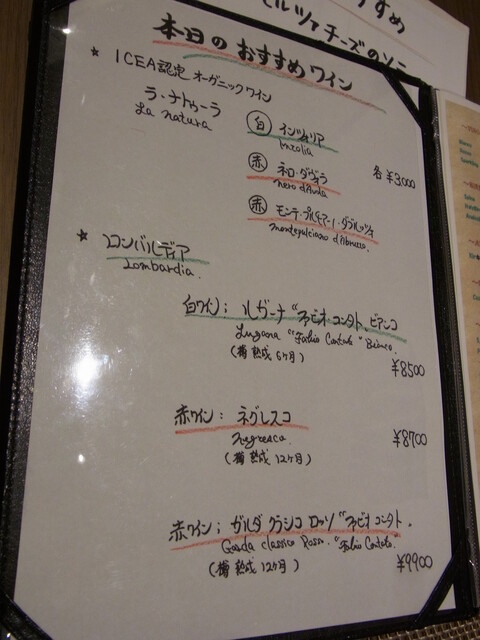 すめ
モルツァチーズのソー
本日のおすすめワイン
★ ICEA認定 オーガニックワイン
ラ・ナトゥーラ
La natura
白 インツォリア
Inzolia
赤 ネロ・ダヴォラ
nero d'Avola
各 ¥3,000
赤 モンテ・プルチアーノ・ダブルッツォ
montepulciano d'Abruzzo
★ ロンバルディア
Lombardia.
白ワイン; ルガーナ "ファビオ・コンタト、ビアンコ
Lugana "Fabio Contato" Bianco.
(樽熟成6ヶ月)
¥8500
赤ワイン: ネグレスコ
Negresco.
(樽熟成12ヶ月)
¥8700
赤ワイン; ガルダ クラシコ ロッソ "ファビオ コンタト.
Garda classico Rosso. "Fabio Contato.
(樽熟成12ヶ月)
¥9900